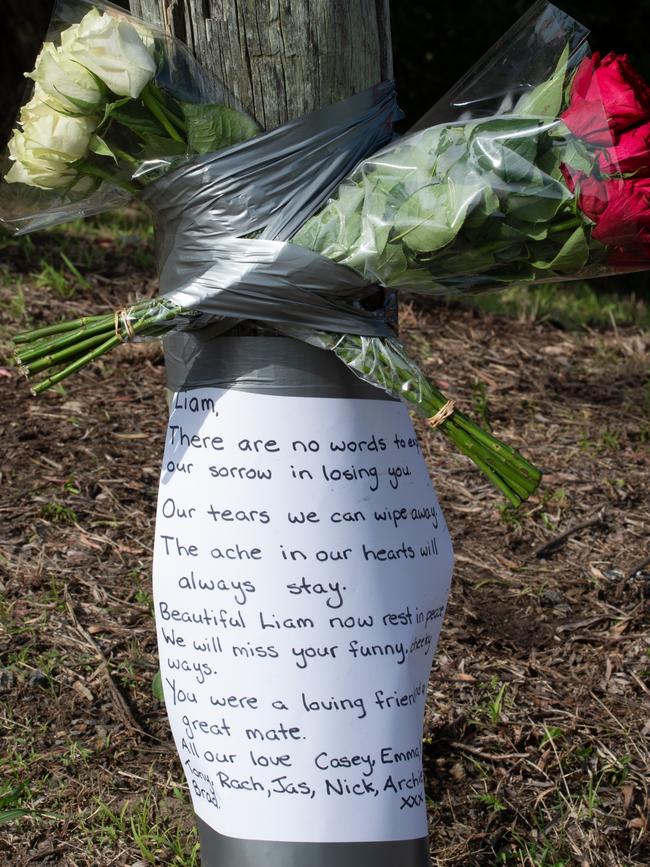 Liam,
There are no words to
our sorrow in losing you.
Our tears we can wipe away.
The ache in our hearts will
always stay.
Beautiful Liam now rest in peace
We will miss your funny, cheeky
ways.
You were a loving friend
great mate.
All our love Casey, Emma,
Tony, Rach, Jas, Nick, Archie
Brad. xxx